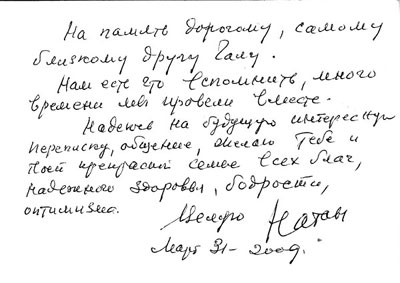 На память дорогому, самому
близкому другу Гаму.
Нам есть что вспомнить, много
времени мы провели вместе.
Надеюсь на будущую интересную
переписку, общение, желаю тебе и
твоей прекрасной семье всех благ,
надежного здоровья, бодрости,
оптимизма.
Натан
Март 31 - 2009.